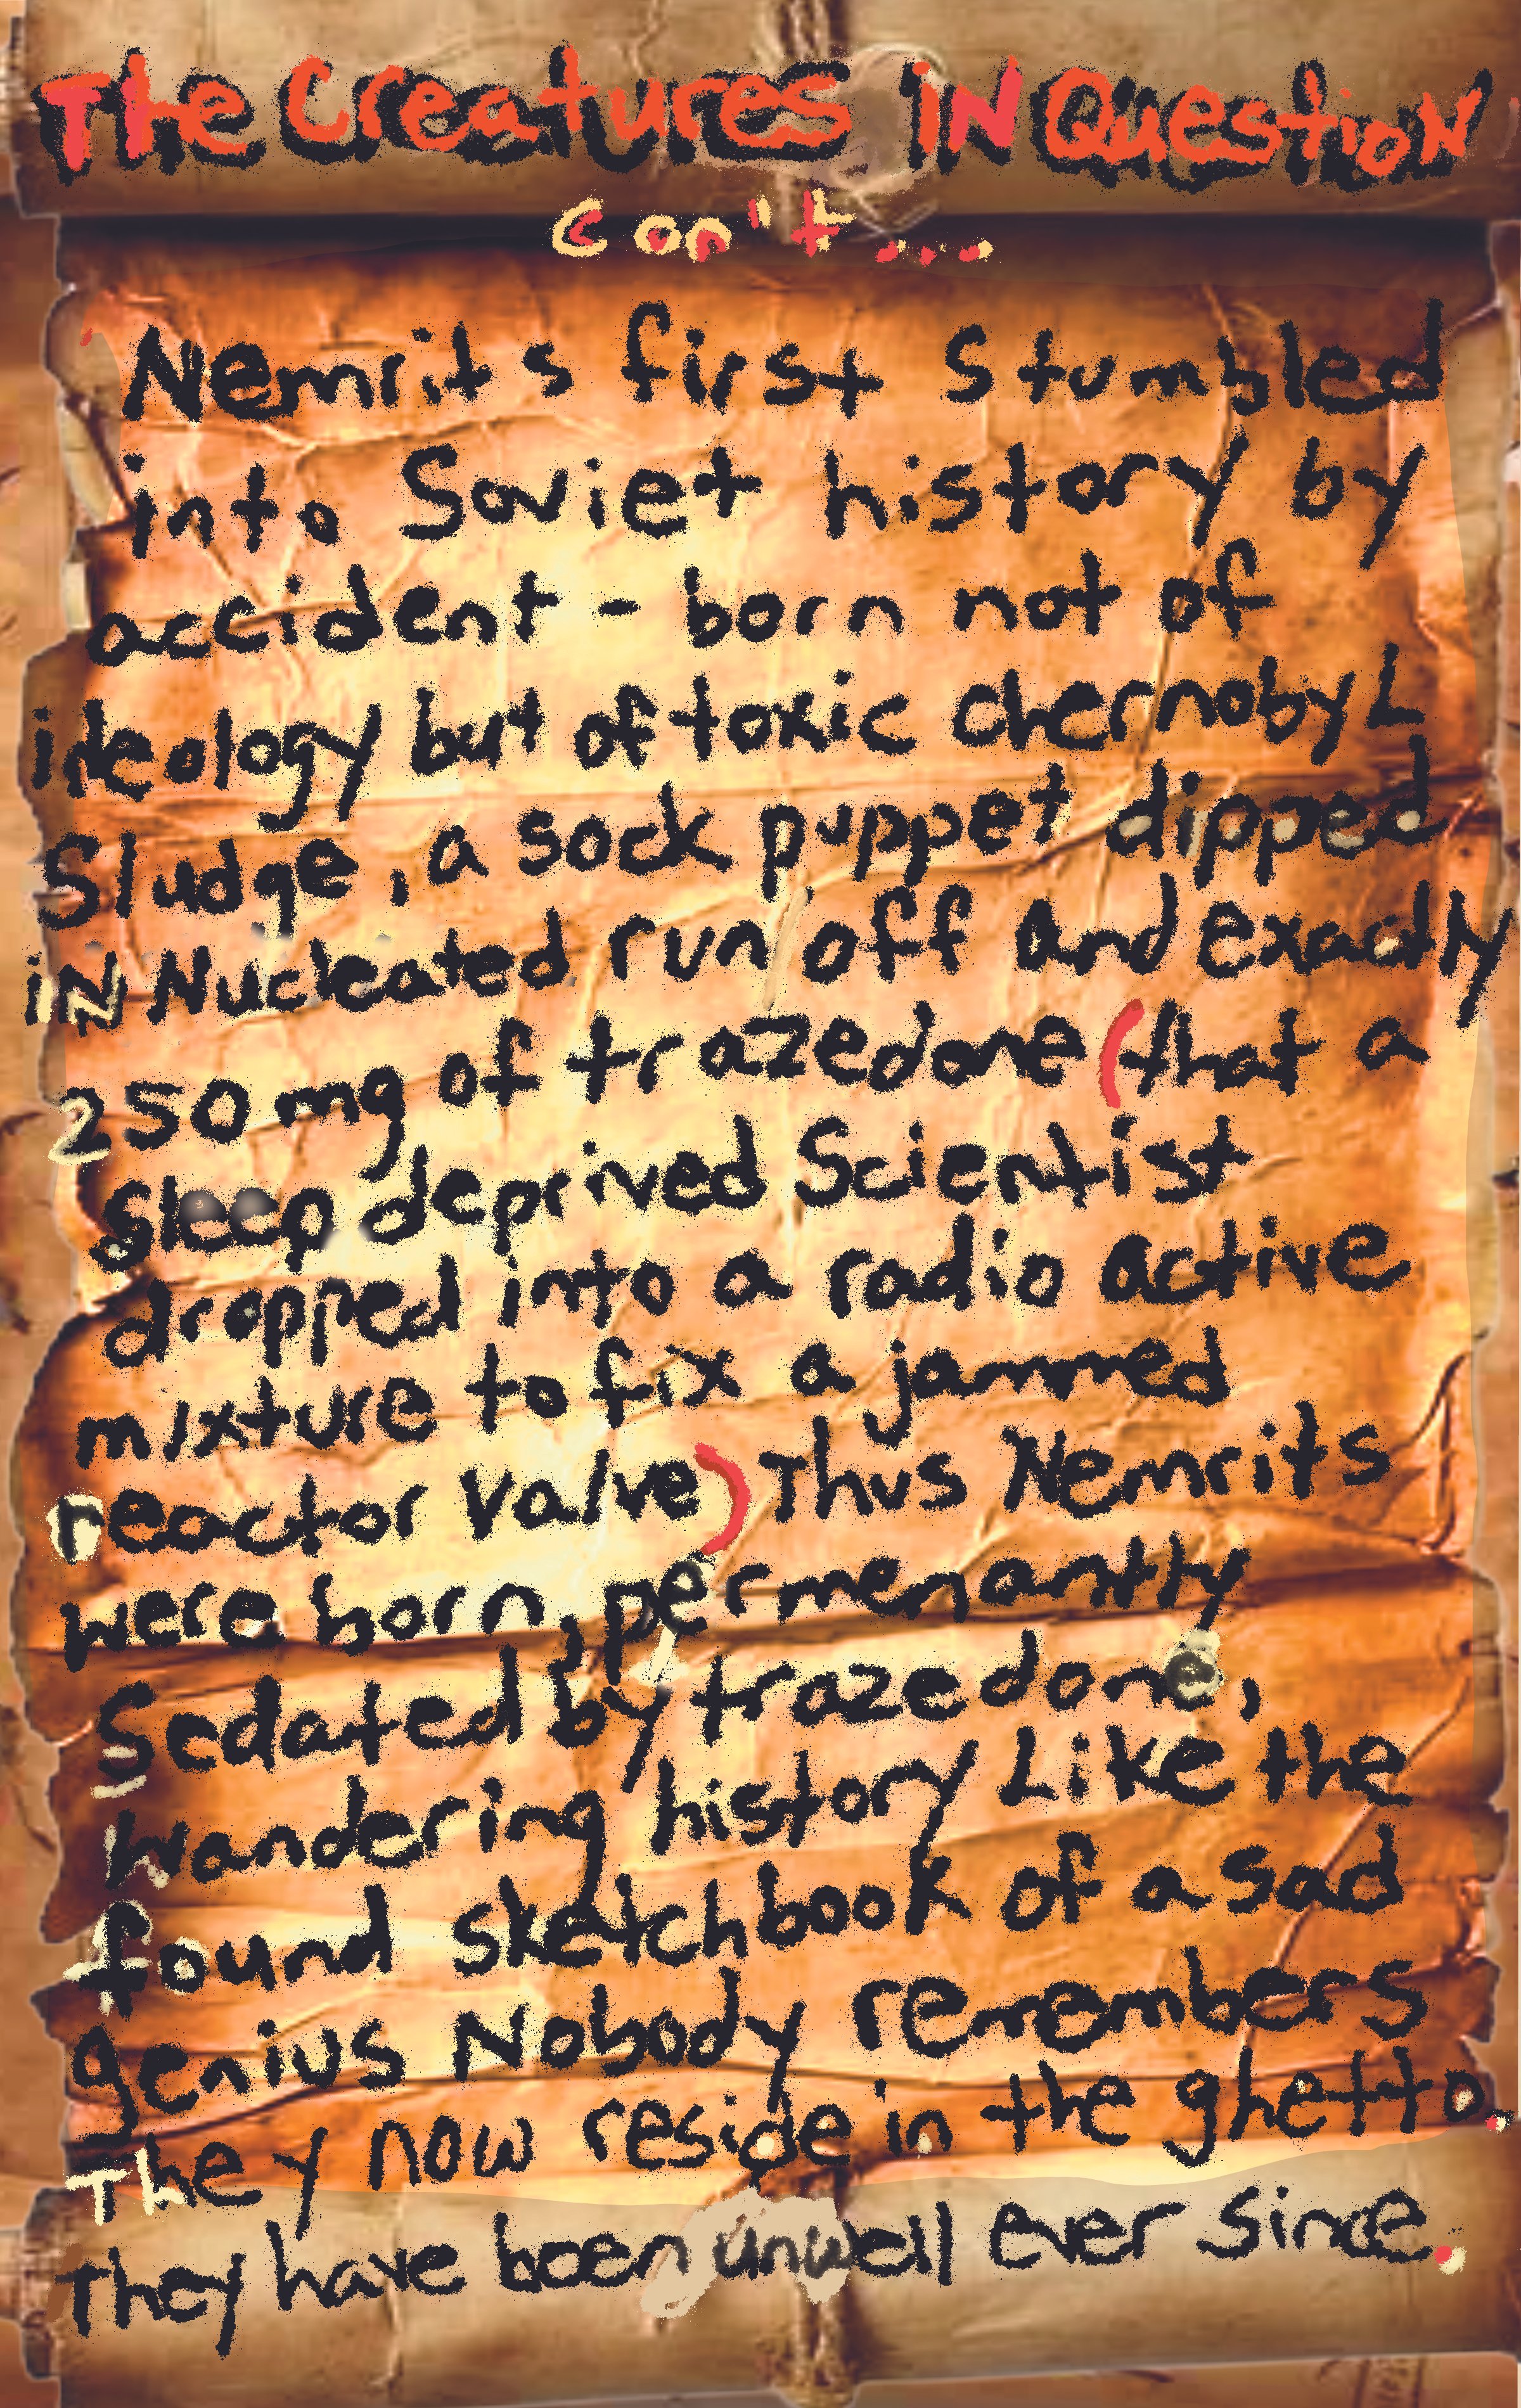 The Creatures iN QuestioN
Con't...
Nemrits first stumbled
into Soviet history by
accident - born not of
ideology but of toxic chernobyL
Sludge, a sock puppet dipped
iN Nucleated run off and exactly
250 mg of trazedone (that a
Sleep deprived Scientist
dropped into a radio active
mixture to fix a jammed
reactor valve) Thus Nemrits
were born, permenantly
Sedated by trazedone,
Wandering history Like the
found sketchbook of a sad
genius Nobody remembers
They now reside in the ghetto.
They have been unwell ever since.